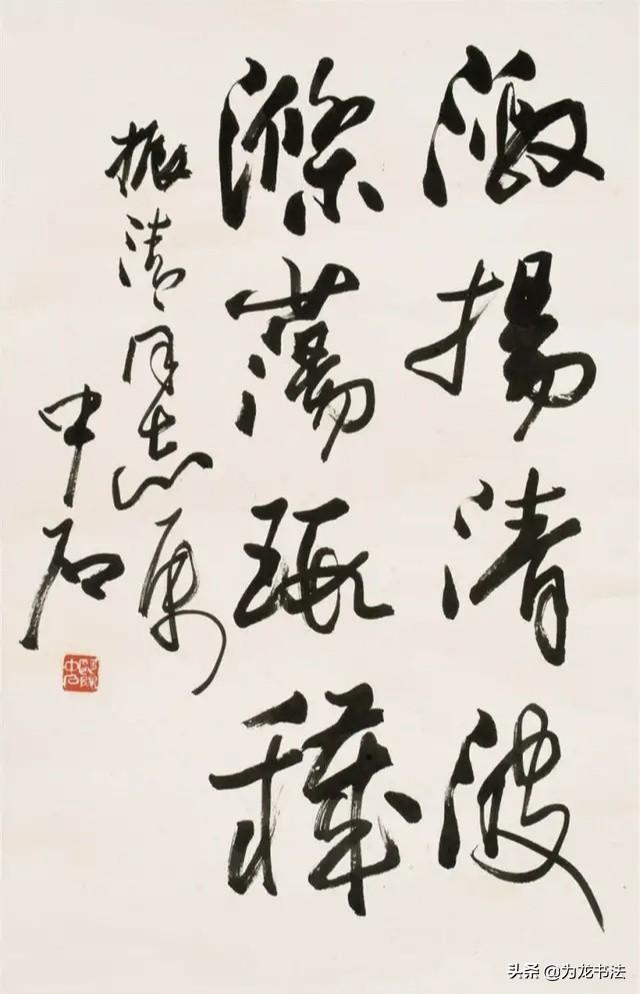 激揚清波
滌蕩瑕穢
振清同志属
中石
头条 @为龙书法